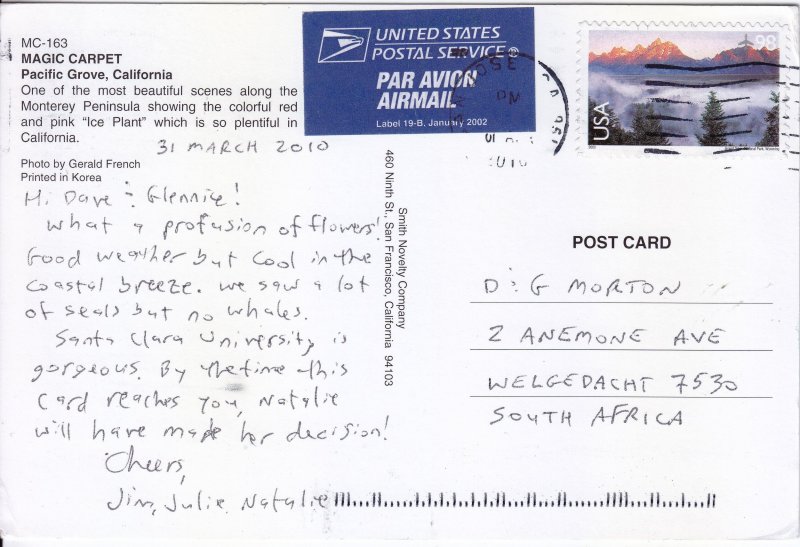 MC-163
MAGIC CARPET
Pacific Grove, California
One of the most beautiful scenes along the
Monterey Peninsula showing the colorful red
and pink "Ice Plant" which is so plentiful in
California.
Photo by Gerald French
Printed in Korea
31 MARCH 2010
Hi Dave & Glennice!
What a profusion of flowers!
Good weather but cool in the
coastal breeze. We saw a lot
of seals but no whales.
Santa Clara University is
gorgeous. By the time this
card reaches you, Natalie
will have made her decision!
Cheers,
Jim, Julie, Natalie
UNITED STATES
POSTAL SERVICE®
PAR AVION
AIRMAIL
Label 19-B, January 2002
PM
98
USA
Smith Novelty Company
460 Ninth St., San Francisco, California 94103
POST CARD
D & G MORTON
2 ANEMONE AVE
WELGEDACHT 7530
SOUTH AFRICA